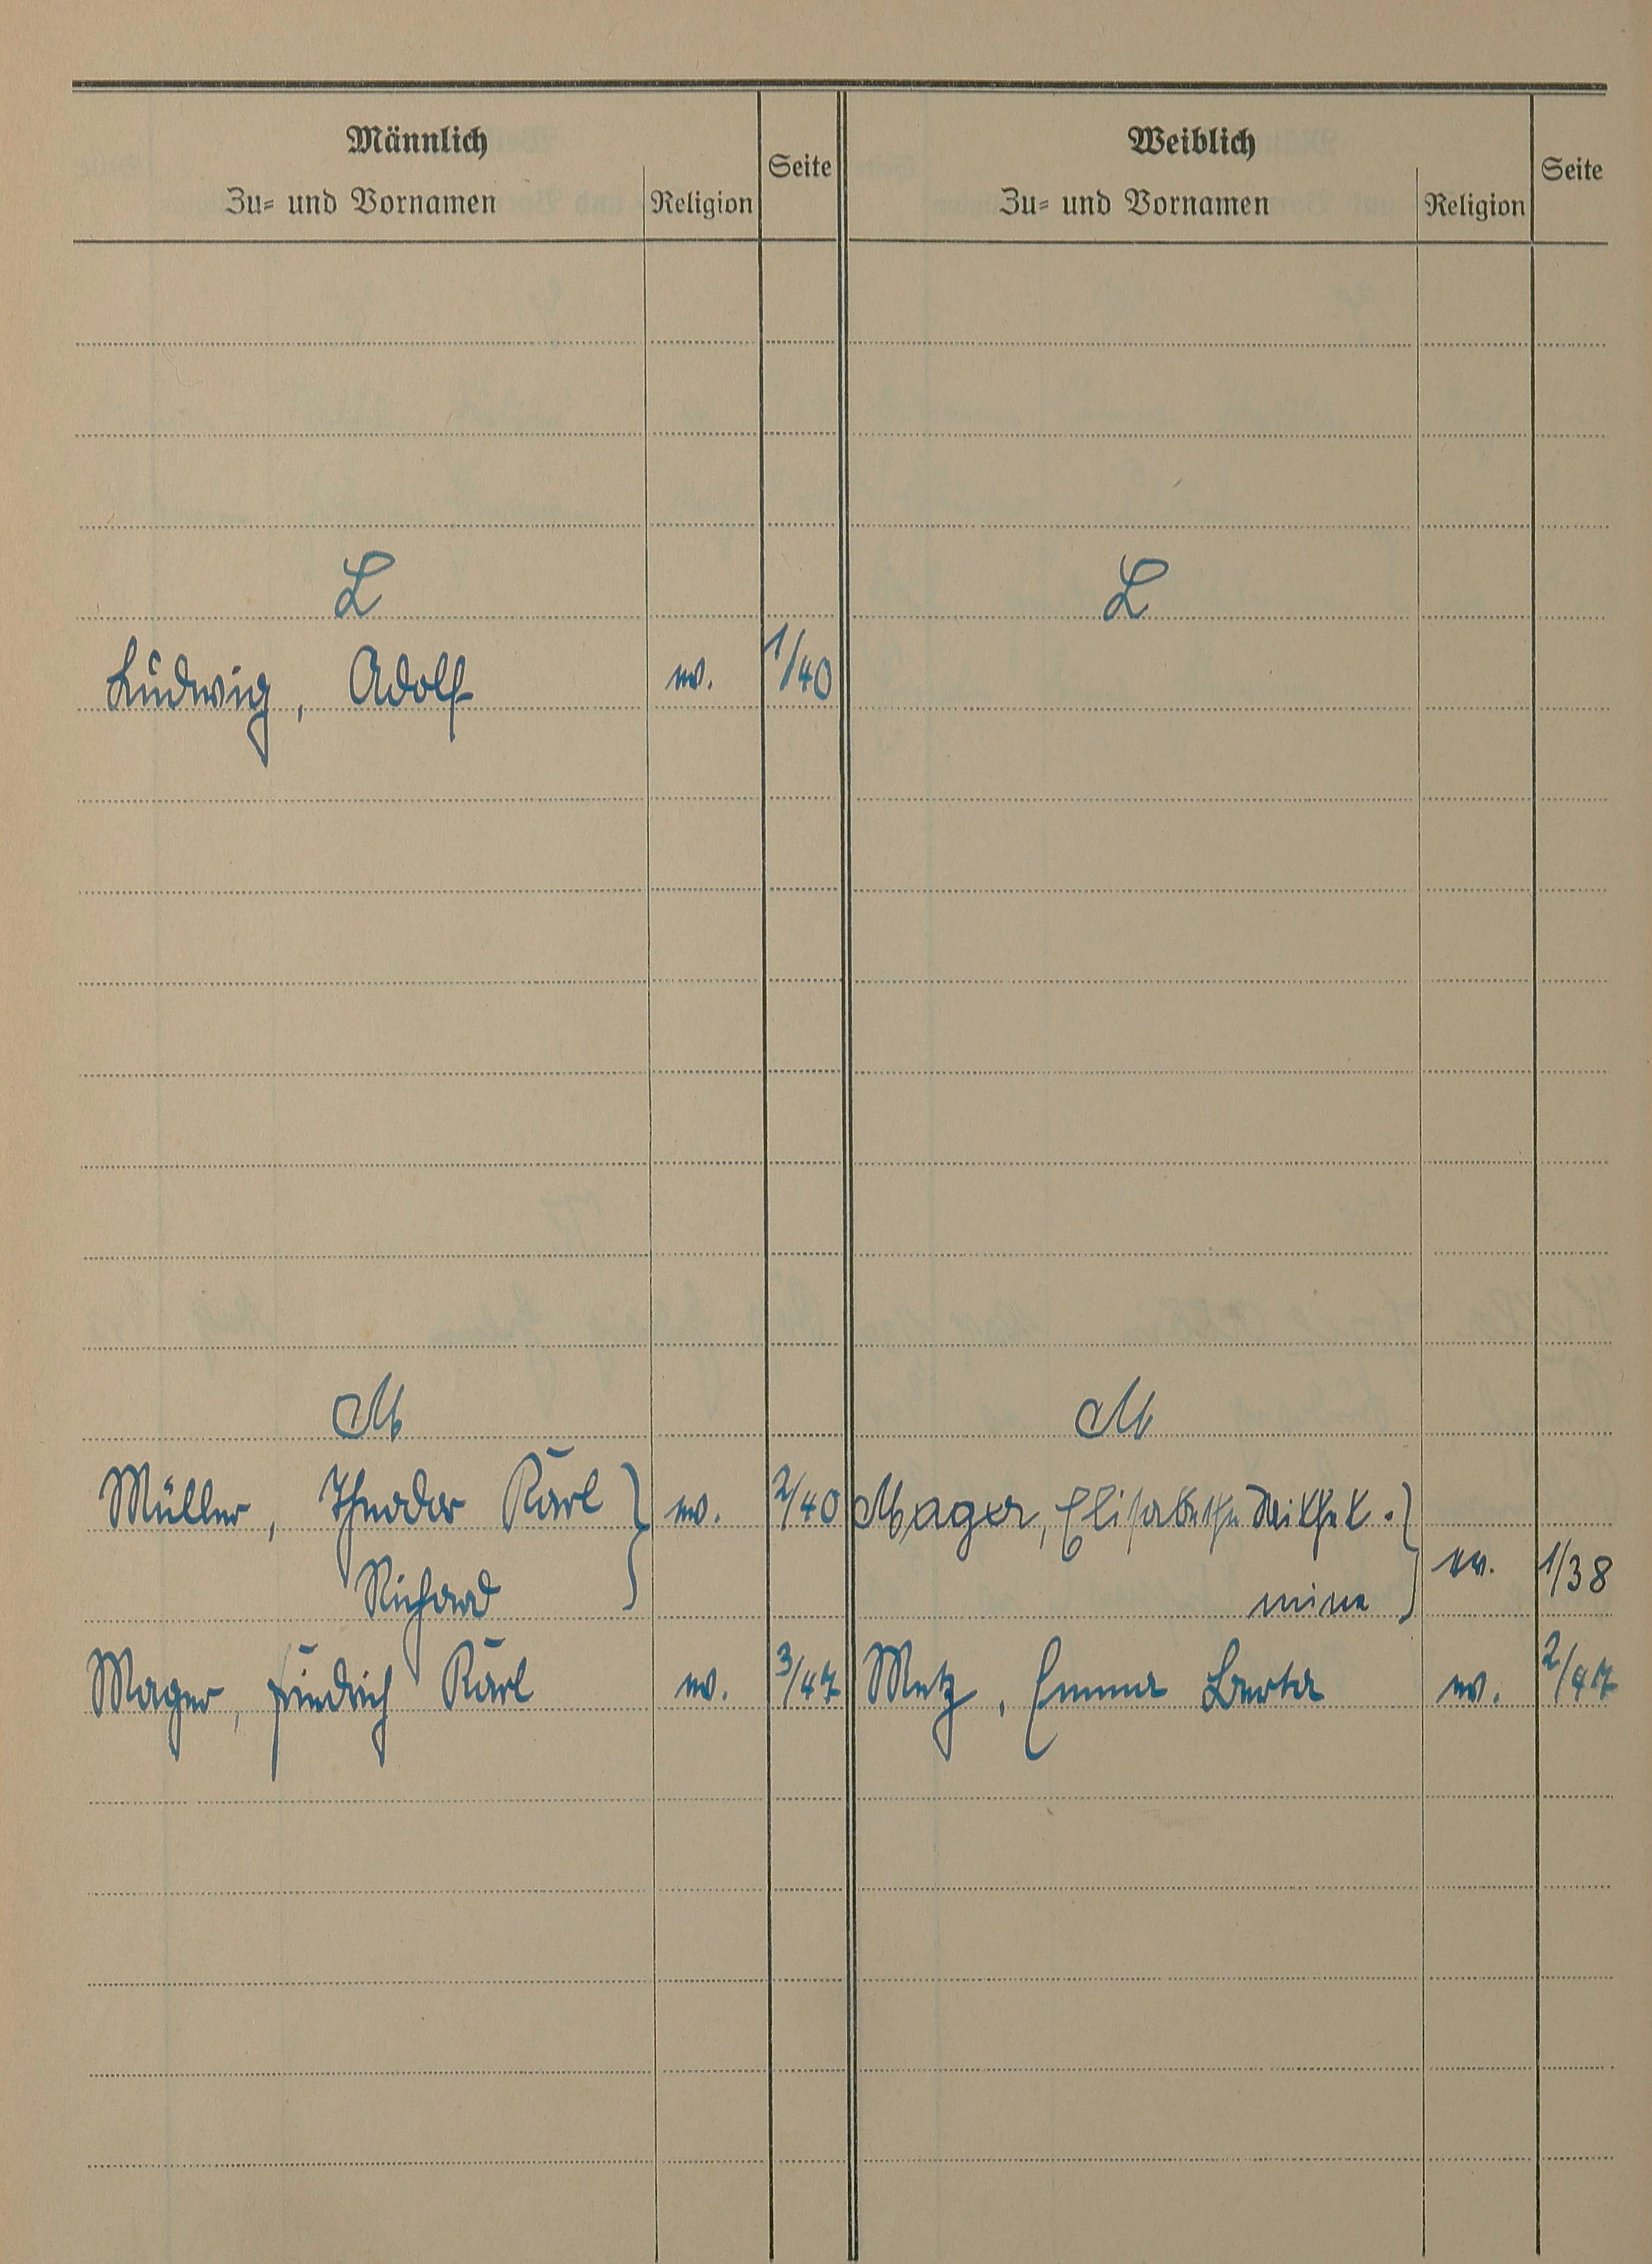 Männlich
Zu- und Vornamen
Religion
Seite
Weiblich
Zu- und Vornamen
Religion
Seite
L
L
Ludwig, Adolf ev. 1/40
M
M
Müller, Theodor Karl ev. 2/40
Richard
Mager, Elisabethe
mine ev. 1/38
Mager, Friedrich Karl ev. 3/47
Metz, Emma Berta ev. 2/47